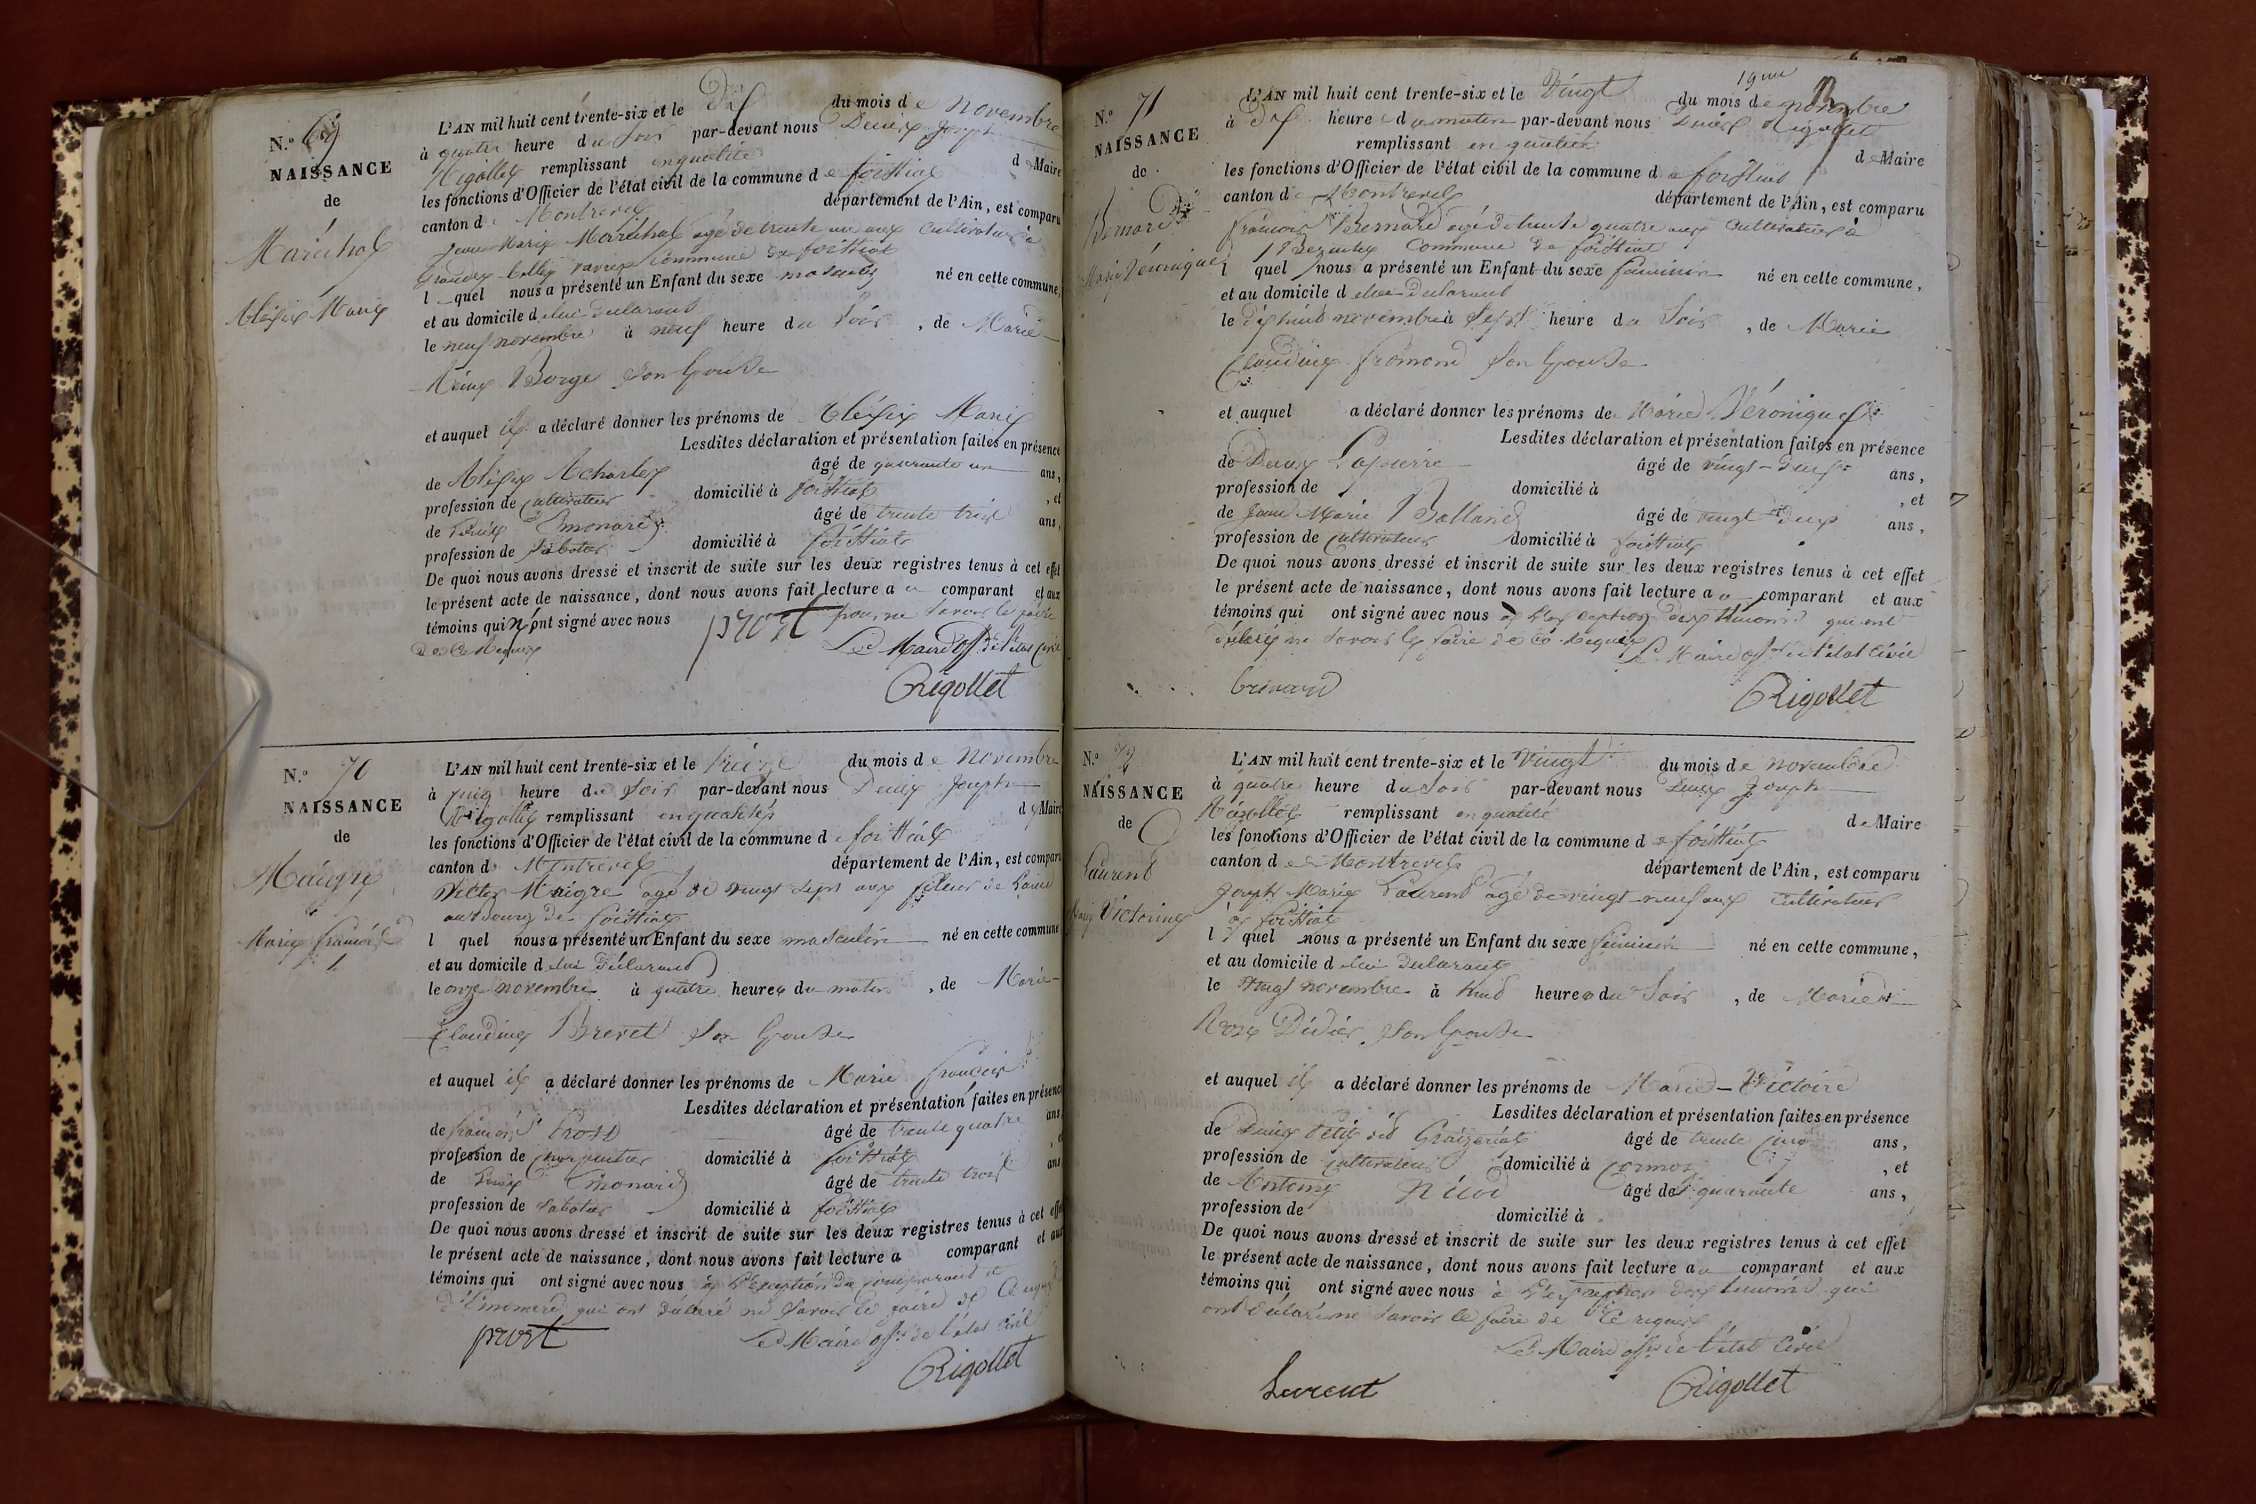 N.° 69
NAISSANCE
de
Maréchal
Aléxix Marix
L'AN mil huit cent trente-six et le dix du mois de Novembre
à quatre heure du soir par-devant nous Denix Joseph
Rigollet remplissant en qualité de Maire
les fonctions d'Officier de l'état civil de la commune de foissiat
canton de Montrevel département de l'Ain, est comparu
Jean Marix Maréchal agé de trente un ans Cultivateur à
commune de foissiat
lequel nous a présenté un Enfant du sexe masculin né en cette commune,
et au domicile de lui déclarant
le neuf novembre à neuf heure du soir, de Marie
Borge son Epouse
et auquel il a déclaré donner les prénoms de Aléxix Marix
Lesdites déclaration et présentation faites en présence
de Aléxix âgé de quarante un ans,
profession de cultivateur domicilié à foissiat, et
de Louix Emonard âgé de trente trois ans,
profession de sabotier domicilié à foissiat
De quoi nous avons dressé et inscrit de suite sur les deux registres tenus à cet effet
le présent acte de naissance, dont nous avons fait lecture au comparant et aux
témoins qui n'ont signé avec nous pour ne savoir le faire
de ce Requix
Le Maire off. de l'état Civil
Rigollet
N.° 70
NAISSANCE
de
Maigre
Marix françois
L'AN mil huit cent trente-six et le treize du mois de Novembre
à cinq heure du soir par-devant nous Denix Joseph
Rigollet remplissant en qualité de Maire
les fonctions d'Officier de l'état civil de la commune de foissiat
canton de Montrevel département de l'Ain, est comparu
Maigre agé de vingt sept ans fileur de Laine
au bourg de foissiat
lequel nous a présenté un Enfant du sexe masculin né en cette commune
et au domicile de lui déclarant
le onze novembre à quatre heure du matin, de Marie
Claudinx Brevet son Epouse
et auquel il a déclaré donner les prénoms de Marie françois
Lesdites déclaration et présentation faites en présence
de françois Prost âgé de trente quatre ans
profession de charpentier domicilié à foissiat
de Louix Emonard âgé de trente trois ans
profession de sabotier domicilié à foissiat
De quoi nous avons dressé et inscrit de suite sur les deux registres tenus à cet effet
le présent acte de naissance, dont nous avons fait lecture a comparant et aux
témoins qui ont signé avec nous à l'Exception du comparant et
d'Emonard qui ont déclaré ne savoir le faire de ce requix
prost Le Maire off. de l'état Civil
Rigollet
N.° 71
NAISSANCE
de
Bernard
Marix Véronique
19
L'AN mil huit cent trente-six et le Vingt du mois de novembre
à dix heure du matin par-devant nous Denix Rigollet
remplissant en qualité de Maire
les fonctions d'Officier de l'état civil de la commune de foissiat
canton de Montrevel département de l'Ain, est comparu
françois Bernard agé de trente quatre ans Cultivateur à
Commune de foissiat
lequel nous a présenté un Enfant du sexe féminin né en cette commune,
et au domicile de lui déclarant
le dix huit novembre à sept heure du soir, de Marie
Claudinx fromond son Epouse
et auquel a déclaré donner les prénoms de Marie Véronique
Lesdites déclaration et présentation faites en présence
de Denix âgé de vingt-deux ans,
profession de domicilié à , et
de Jean Marie Balland âgé de vingt deux ans,
profession de Cultivateur domicilié à foissiat
De quoi nous avons dressé et inscrit de suite sur les deux registres tenus à cet effet
le présent acte de naissance, dont nous avons fait lecture au comparant et aux
témoins qui ont signé avec nous à l'Exception des témoins qui ont
déclaré ne savoir le faire de ce requix Le Maire off. de l'état Civil
Rigollet
N.° 72
NAISSANCE
de
Laurent
Marix Victorine
L'AN mil huit cent trente-six et le Vingt du mois de novembre
à quatre heure du soir par-devant nous Denix Joseph
Rigollet remplissant en qualité de Maire
les fonctions d'Officier de l'état civil de la commune de foissiat
canton de Montrevel département de l'Ain, est comparu
Joseph Marix Laurent agé de vingt-neuf ans cultivateur
à foissiat
lequel nous a présenté un Enfant du sexe féminin né en cette commune,
et au domicile de lui déclarant
le vingt novembre à huit heure du soir, de Marie
Rose Didier son Epouse
et auquel il a déclaré donner les prénoms de Marie-Victoire
Lesdites déclaration et présentation faites en présence
de Denix Petit dit âgé de trente cinq ans,
profession de cultivateur domicilié à Cormoz, et
de Antoine Nicod âgé de quarante ans,
profession de domicilié à
De quoi nous avons dressé et inscrit de suite sur les deux registres tenus à cet effet
le présent acte de naissance, dont nous avons fait lecture au comparant et aux
témoins qui ont signé avec nous à l'Exception des témoins qui
ont déclaré ne savoir le faire de ce requix
Le Maire off. de l'état Civil
Laurent Rigollet